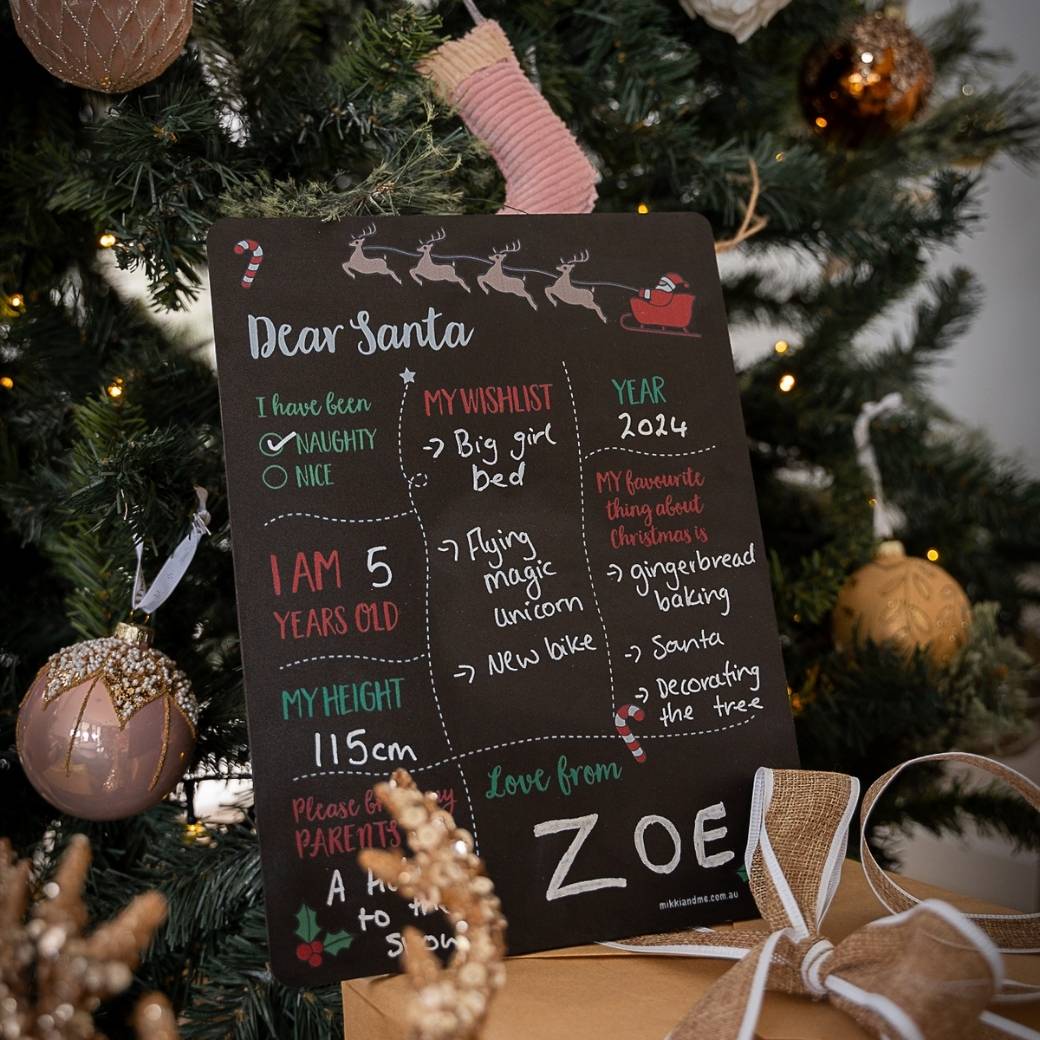 Dear Santa
I have been
NAUGHTY
NICE
I AM 5
YEARS OLD
MY HEIGHT
115cm
Please
PARENTS
A
to
snow
MY WISHLIST
-> Big girl
bed
-> Flying
magic
unicorn
-> New bike
YEAR
2024
MY favourite
thing about
Christmas is
-> gingerbread
baking
-> Santa
-> Decorating
the tree
Love from
ZOE
mikkiandme.com.au